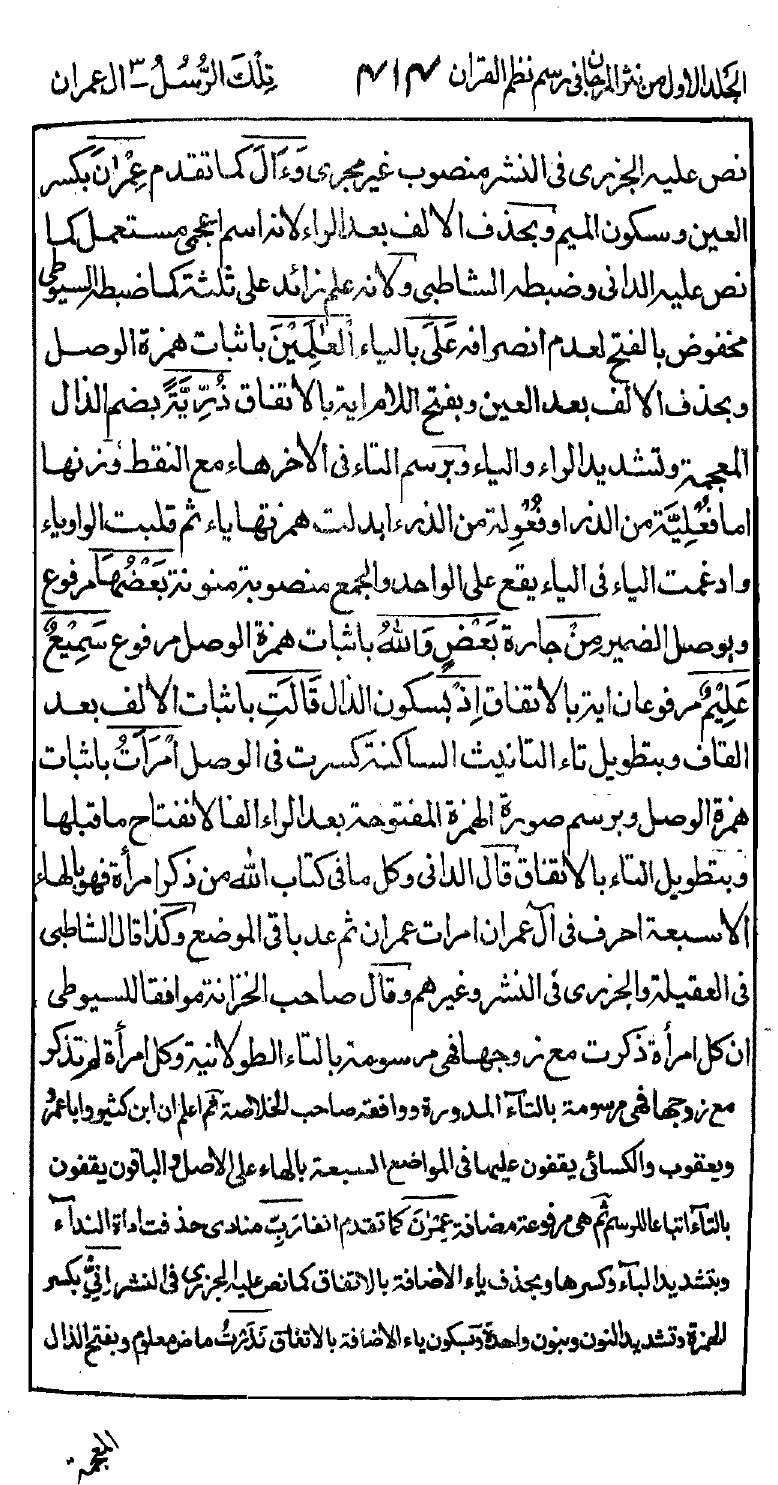 الجلد الاول من نثر المرجان فى رسم نظم القران ٣١٣ تِلْكَ الرُّسُلُ ٣ ال عمران
نص عليه الجزرى فى النشر منصوب غير مجرى وَءَالَ كما تقدم عِمْرٰنَ بكسر
العين وسكون الميم وبحذف الالف بعد الراء لانه اسم اعجمى مستعمل كما
نص عليه الدانى وضبطه الشاطبى ولانه علم زائد على ثلثة كما ضبطه السيوطى
مخفوض بالفتح لعدم انصرافه عَلَى بالياء الْعٰلَمِيْنَ باثبات همزة الوصل
وبحذف الالف بعد العين وبفتح اللام اية بالاتفاق ذُرِّيَّةً بضم الذال
المعجمة وتشديد الراء والياء وبرسم التاء فى الاخر هاء مع النقط وزنها
اما فُعْلِيَّة من الذر او فُعُولة من الذرء ابدلت همزتها ياء ثم قلبت الواو ياء
وادغمت الياء فى الياء يقع على الواحد والجمع منصوبة منونة بَعْضُهَا مرفوع
وبوصل الضمير مِنْ جارة بَعْضٍ وَاللهُ باثبات همزة الوصل مرفوع سَمِيْعٌ
عَلِيْمٌ مرفوعان اية بالاتفاق اِذْ بسكون الذال قَالَتِ باثبات الالف بعد
القاف وبتطويل تاء التانيث الساكنة كسرت فى الوصل امْرَاَتُ باثبات
همزة الوصل وبرسم صورة الهمزة المفتوحة بعد الراء الفا لانفتاح ما قبلها
وبتطويل التاء بالاتفاق قال الدانى وكل ما فى كتاب الله من ذكر امرأة فهو بالهاء
الا سبعة احرف فى آل عمران امرات عمران ثم عد باقى الموضع وكذا قال الشاطبى
فى العقيلة والجزرى فى النشر وغيرهم وقال صاحب الخزانة موافقا للسيوطى
ان كل امرأة ذكرت مع زوجها فهى مرسومة بالتاء الطولانية وكل امرأة لم تذكر
مع زوجها فهى مرسومة بالتآء المدورة ووافقه صاحب الخلاصة ثم اعلم ان ابن كثير وابا عمرو
ويعقوب والكسائى يقفون عليها فى المواضع السبعة بالهاء على الاصل والباقون يقفون
بالتآء اتباعا للرسم ثم هى مرفوعة مضافة عِمْرٰنَ كما تقدم انفا رَبِّ منادى حذفت اداة الندآء
وبتشديد البآء وكسرها وبحذف ياء الاضافة بالاتفاق كما نص عليه الجزرى فى النشر اِنِّيْ بكسر
الهمزة وتشديد النون وبنون واحدة وبسكون ياء الاضافة بالاتفاق نَذَرْتُ ماض معلوم وبفتح الذال
المعجمة